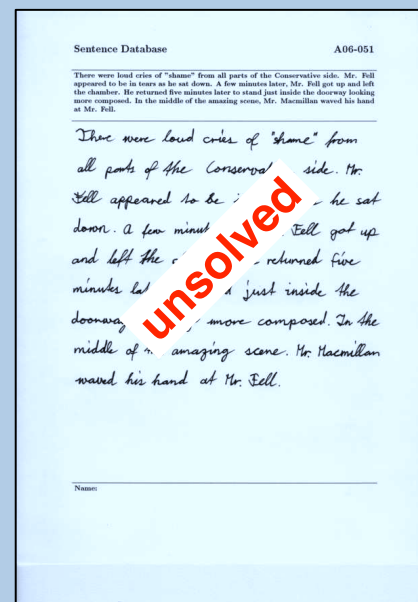 Sentence Database A06-051
There were loud cries of "shame" from all parts of the Conservative side. Mr. Fell
appeared to be in tears as he sat down. A few minutes later, Mr. Fell got up and left
the chamber. He returned five minutes later to stand just inside the doorway looking
more composed. In the middle of the amazing scene, Mr. Macmillan waved his hand
at Mr. Fell.
There were loud cries of "shame" from
all parts of the side. Mr.
Fell appeared to be he sat
down. A few Fell got up
and left the returned five
minutes just inside the
more composed. In the
middle of amazing scene. Mr. Macmillan
waved his hand at Mr. Fell.
unsolved
Name: